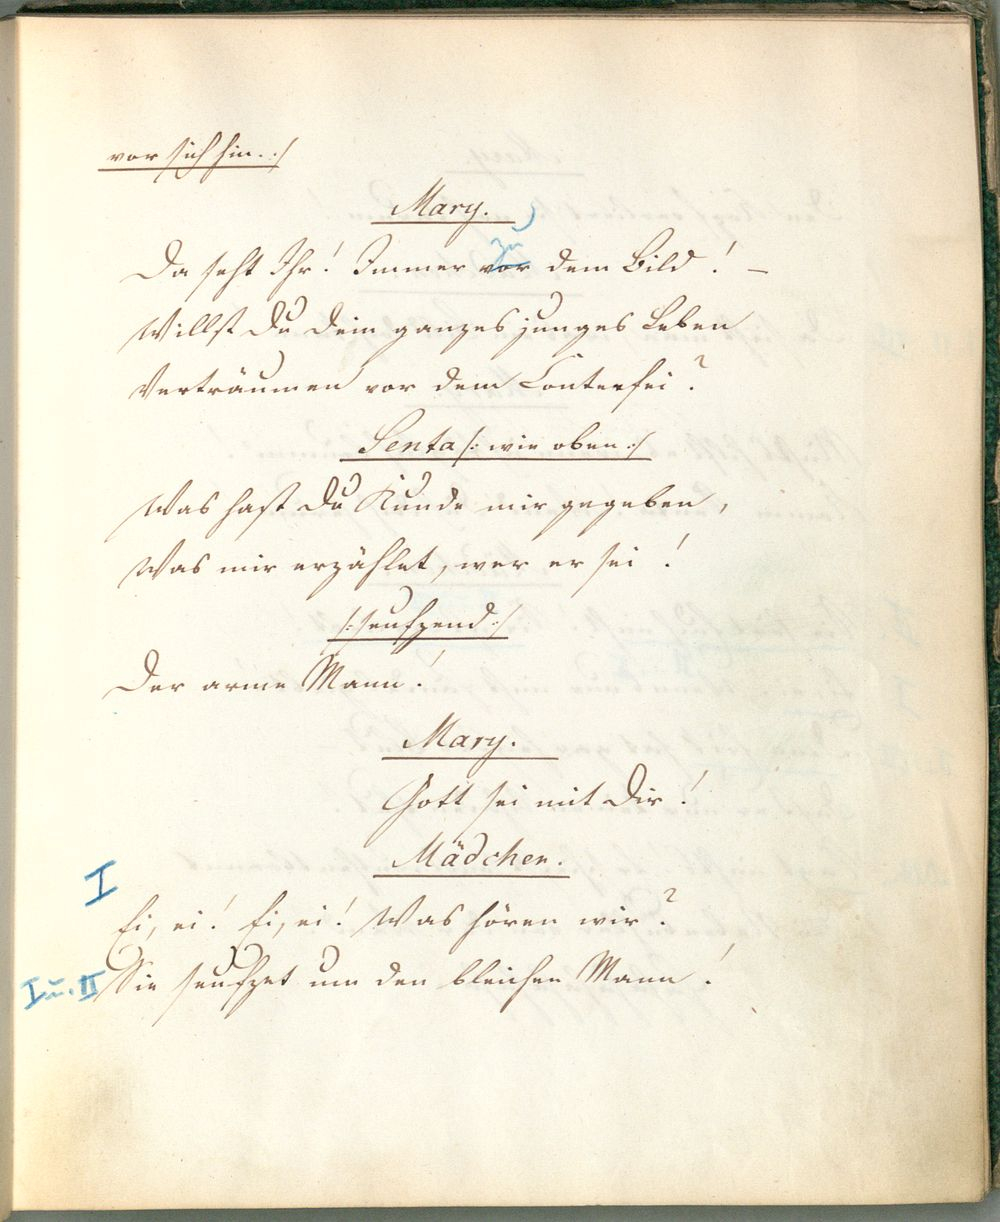 vor sich hin. :/
Mary.
zu
Da seht Ihr! Immer vor dem Bild! –
Willst du dein ganzes junges Leben
Verträumen vor dem Conterfei?
Senta /: wie oben :/
Was hast du Kunde mir gegeben,
Was mir erzählet, wer er sei!
/: seufzend :/
Der arme Mann!
Mary.
Gott sei mit dir!
Mädchen.
I
Ei, ei! Ei, ei! Was hören wir?
I u. II Sie seufzet um den bleichen Mann!